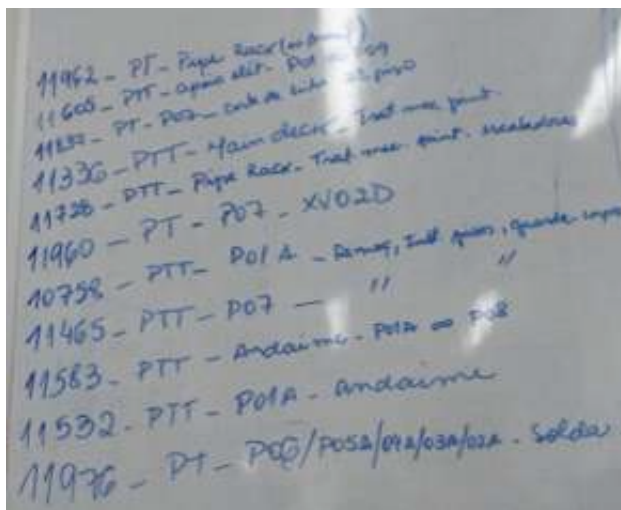 11962 - PT - Pipe Rack
11605 - PTT - apoio elét. P01
PT - P07 - corte de piso
11336 - PTT - Main deck - Trat. mec. pint.
11728 - PTT - Pipe Rack - Trat. mec. pint. escaladores
11960 - PT - P07 - XV02D
10758 - PTT - P01A - guarda
11465 - PTT - P07 - " "
11583 - PTT - Andaime - P01A P08
11532 - PTT - P01A - andaime
11976 - PT - P06/P05A/04A/03A/02A - Solda